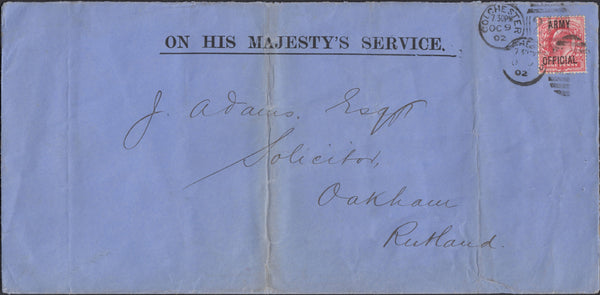 COLCHESTER
7.30PM
OC 9
02
ARMY
OFFICIAL
02
ON HIS MAJESTY'S SERVICE.
J. Adams. Esqr
Solicitor,
Oakham
Rutland.